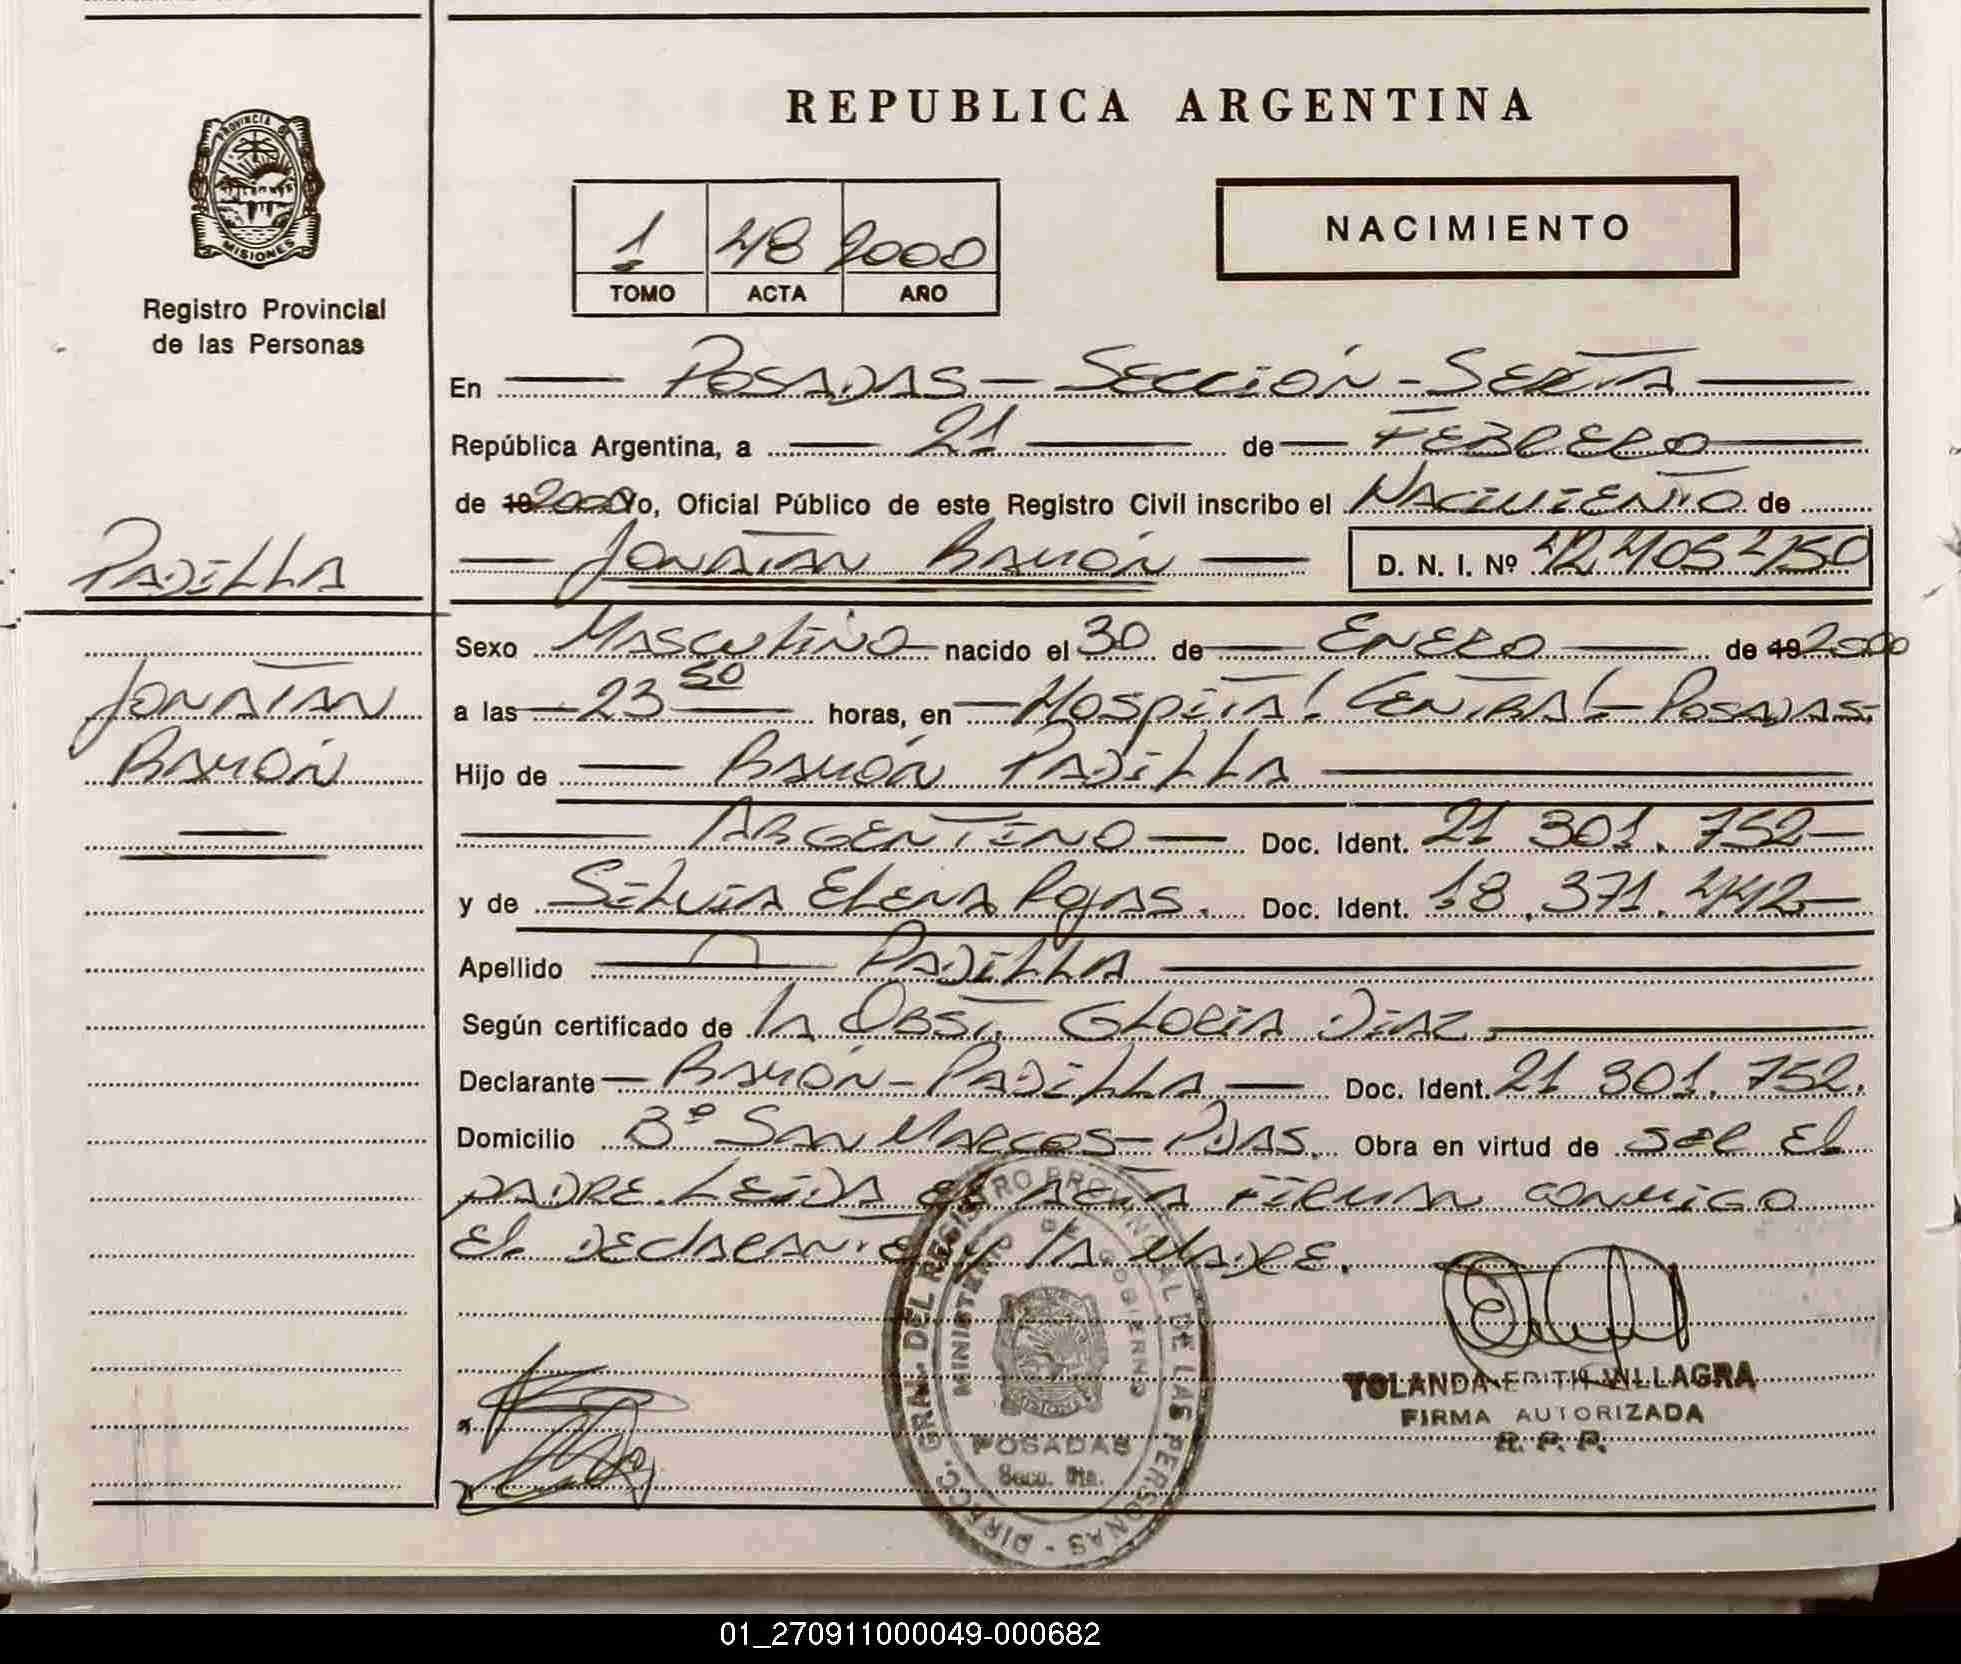 REPUBLICA ARGENTINA
PROVINCIA DE
MISIONES
Registro Provincial
de las Personas
1 48 2000
TOMO ACTA AÑO
NACIMIENTO
En POSADAS - SECCIÓN - SEXTA
República Argentina, a 21 de FEBRERO
de 19 2000 Yo, Oficial Público de este Registro Civil inscribo el NACIMIENTO de
JONATAN RAMÓN D. N. I. Nº 42.405.750
PADILLA
JONATAN
RAMÓN
Sexo MASCULINO nacido el 30 de ENERO de 19 2000
a las 23 50 horas, en HOSPITAL CENTRAL - POSADAS.
Hijo de RAMÓN PADILLA
ARGENTINO Doc. Ident. 21 301.752
y de SILVIA ELENA ROJAS. Doc. Ident. 18.371.442
Apellido PADILLA
Según certificado de LA OBST. GLORIA DIAZ.
Declarante RAMÓN - PADILLA Doc. Ident. 21 301.752.
Domicilio Bº SAN MARCOS - PDAS. Obra en virtud de SER EL
PADRE. LEIDA EL ACTA FIRMAN CONMIGO
EL DECLARANTE Y LA MADRE.
DIRECC. GRAN. DEL REGISTRO PROVINCIAL DE LAS PERSONAS
MINISTERIO DE GOBIERNO
POSADAS
Secc. 6ta.
YOLANDA EDITH VILLAGRA
FIRMA AUTORIZADA
R. P. P.
01_270911000049-000682